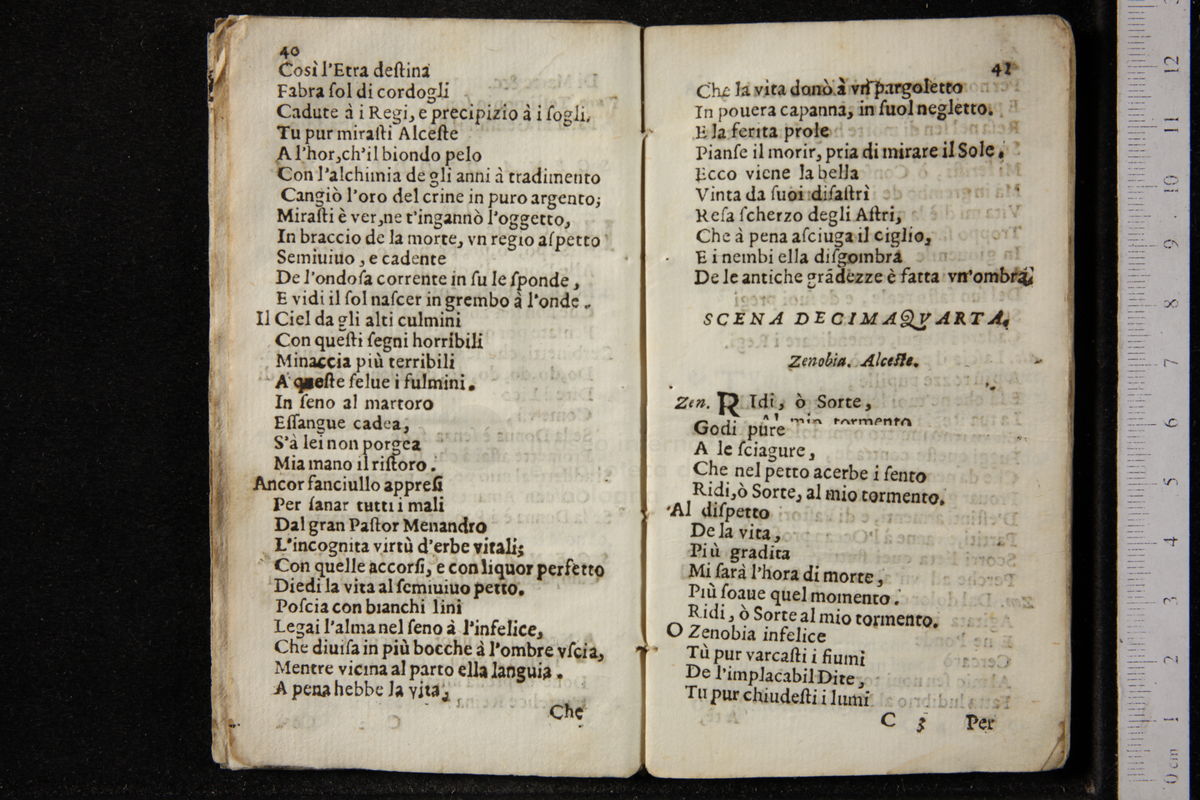 40
Così l'Etra destina
Fabra sol di cordogli
Cadute à i Regi, e precipizio à i sogli.
Tu pur mirasti Alceste
A l'hor, ch'il biondo pelo
Con l'alchimia de gli anni à tradimento
Cangiò l'oro del crine in puro argento;
Mirasti è ver, ne t'ingannò l'oggetto,
In braccio de la morte, vn regio aspetto
Semiuiuo, e cadente
De l'ondosa corrente in su le sponde,
E vidi il sol nascer in grembo à l'onde.
Il Ciel da gli alti culmini
Con questi segni horribili
Minaccia più terribili
A queste selue i fulmini.
In seno al martoro
Essangue cadea,
S'à lei non porgea
Mia mano il ristoro.
Ancor fanciullo appresi
Per sanar tutti i mali
Dal gran Pastor Menandro
L'incognita virtù d'erbe vitali;
Con quelle accorsi, e con liquor perfetto
Diedi la vita al semiuiuo petto.
Poscia con bianchi lini
Legai l'alma nel seno à l'infelice,
Che diuisa in più bocche à l'ombre vscia,
Mentre vicina al parto ella languia.
A pena hebbe la vita,
Che
41
Che la vita donò à vn pargoletto
In pouera capanna, in suol negletto.
E la ferita prole
Pianse il morir, pria di mirare il Sole.
Ecco viene la bella
Vinta da suoi disastri
Resa scherzo degli Astri,
Che à pena asciuga il ciglio,
E i nembi ella disgombra
De le antiche grãdezze è fatta vn'ombra.
SCENA DECIMAQVARTA.
Zenobia. Alceste.
Zen. RIdi, ò Sorte,
Godi pure
A le sciagure,
Che nel petto acerbe i sento
Ridi, ò Sorte, al mio tormento.
Al dispetto
De la vita,
Più gradita
Mi sarà l'hora di morte,
Più soaue quel momento.
Ridi, ò Sorte al mio tormento.
O Zenobia infelice
Tù pur varcasti i fiumi
De l'implacabil Dite,
Tu pur chiudesti i lumi
C 3 Per